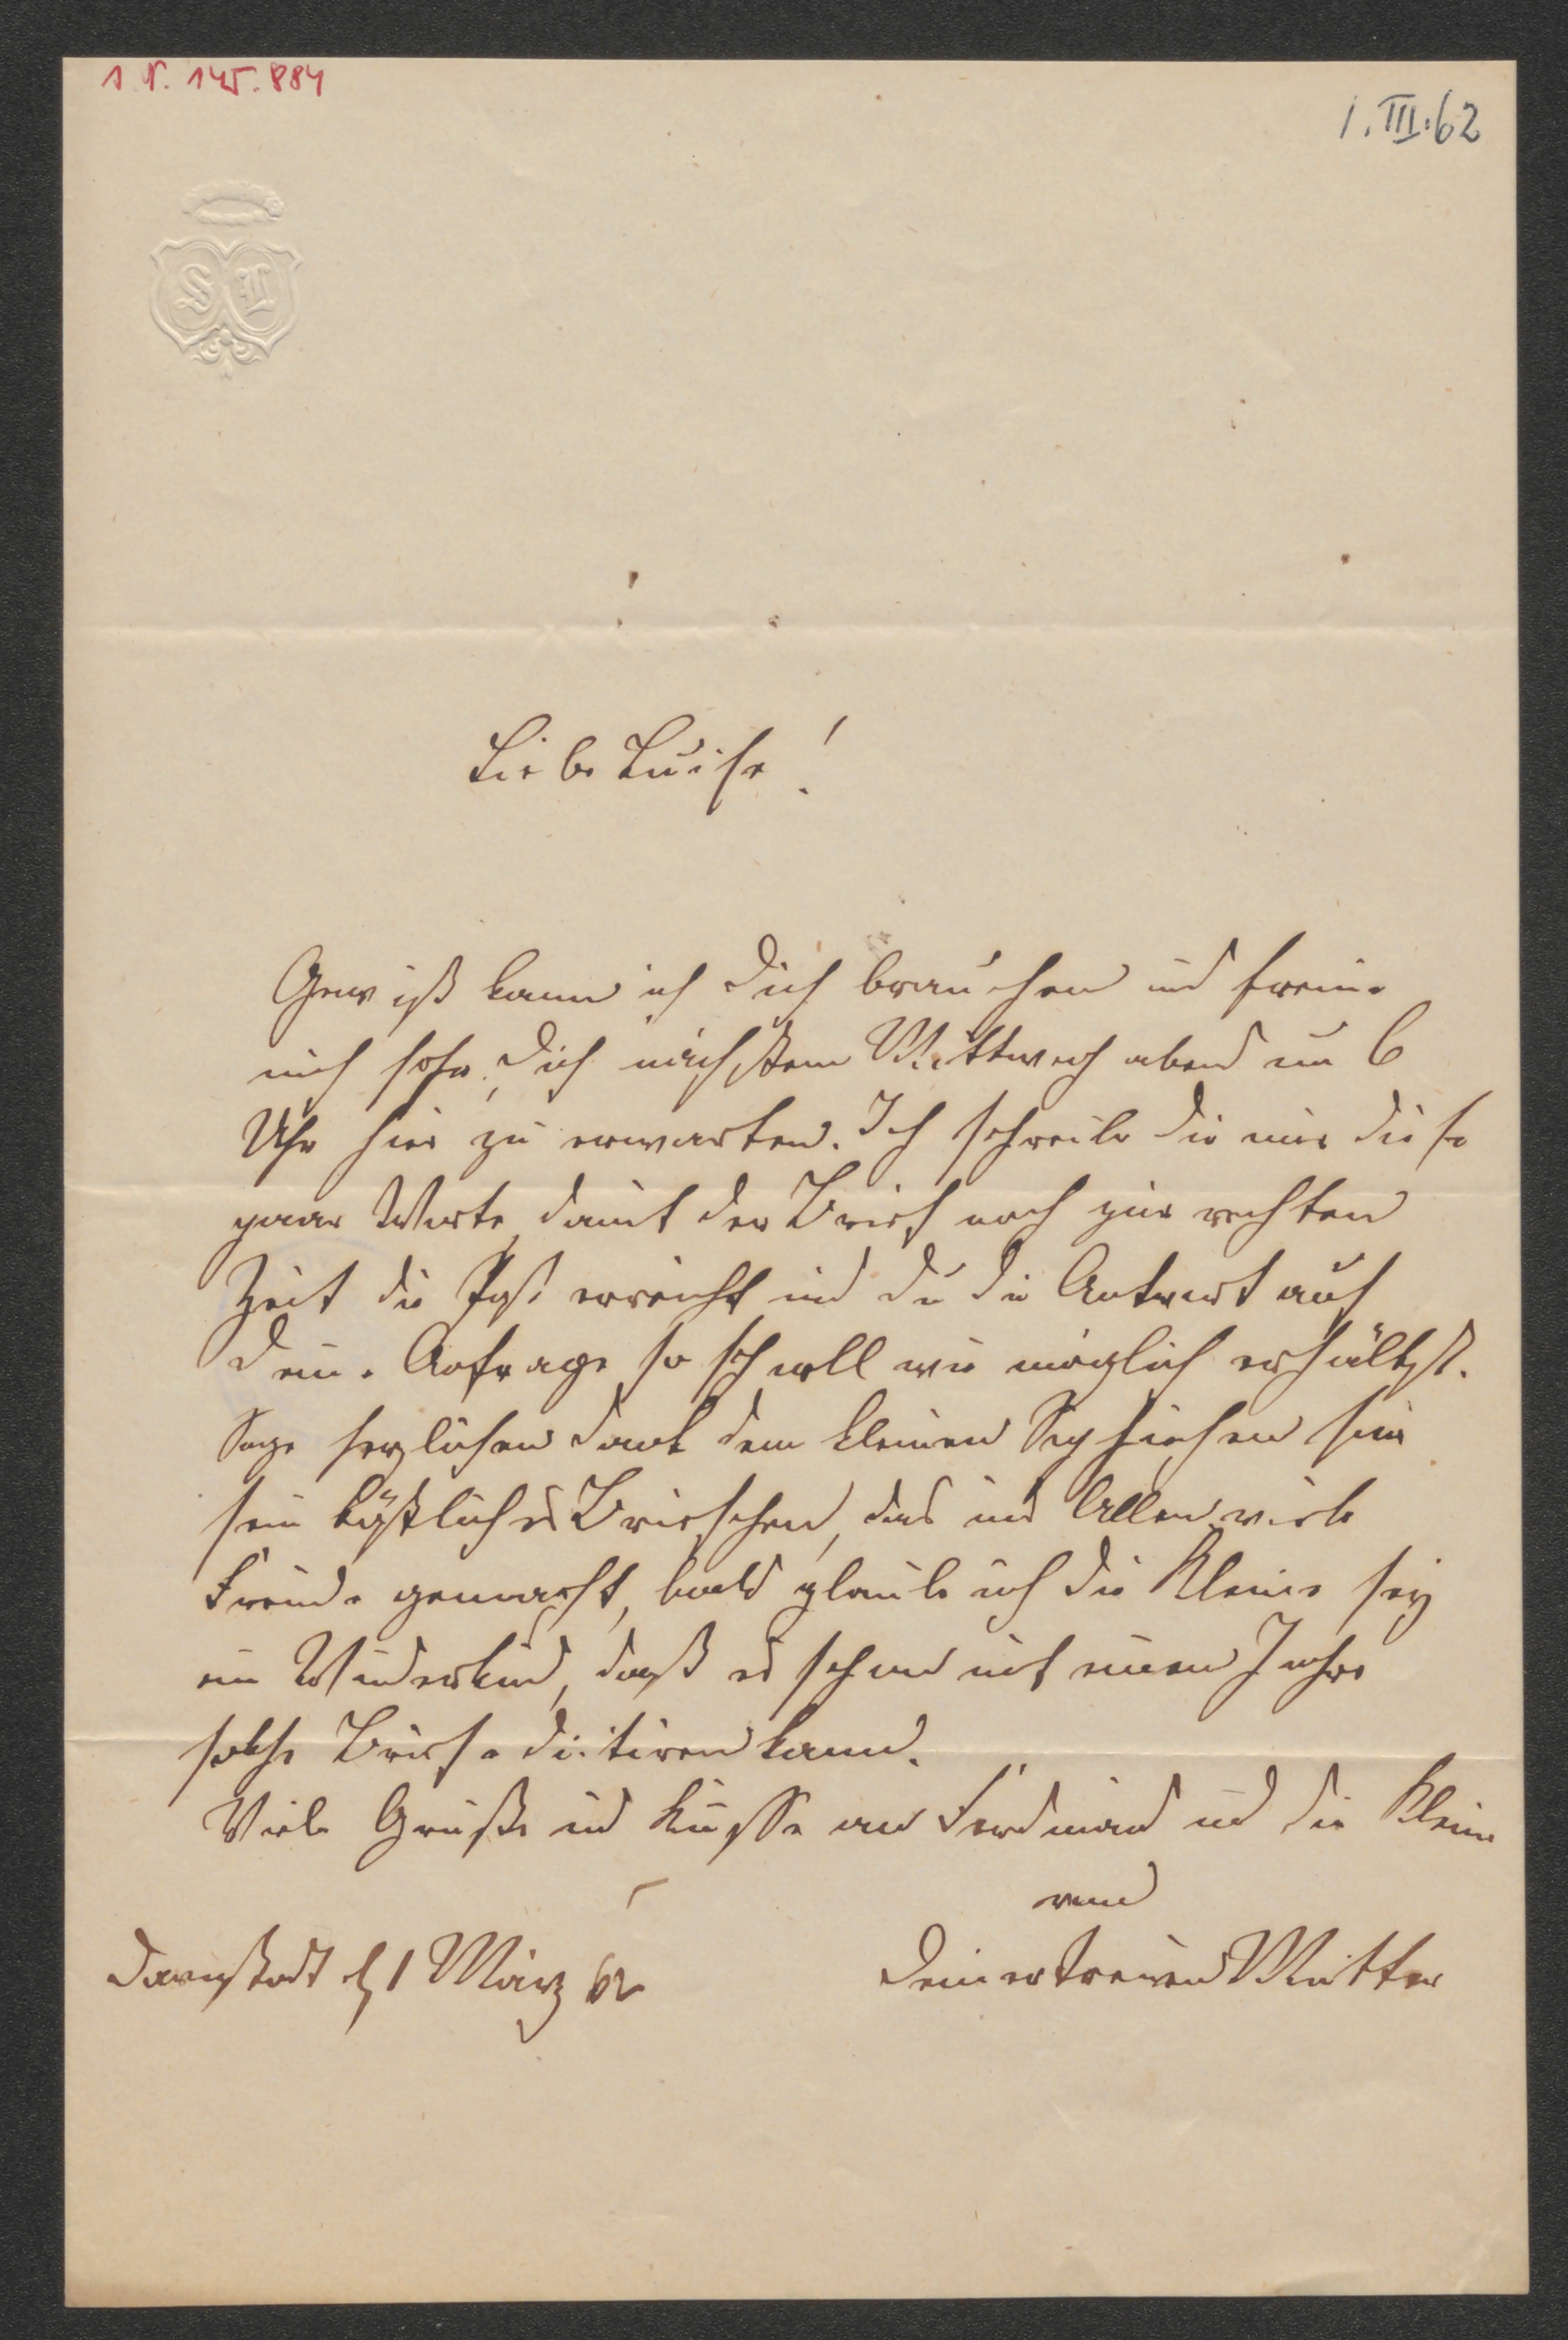 1 N. 145.884
1. III. 62
S L
Liebe Luise!
Gewiß kann ich Dich brauchen und freue
mich sehr, Dich nächsten Mittwoch abend um 6
Uhr hier zu erwarten. Ich schreibe Dir nur diese
paar Worte, damit der Brief noch zur rechten
Zeit die Post erreicht und Du die Antwort auf
Deine Anfrage so schnell wie möglich erhältst.
Sage herzlichen Dank dem kleinen Sophiechen für
sein köstliches Briefchen, das uns Allen viele
Freude gemacht, bald glaube ich die Kleine sey
ein Wunderkind, daß es schon mit einem Jahre
solche Briefe dictiren kann.
Viele Grüße und Küsse an Ferdinand und die Kleine
von
Darmstadt d 1 März 62
Deiner treuen Mutter